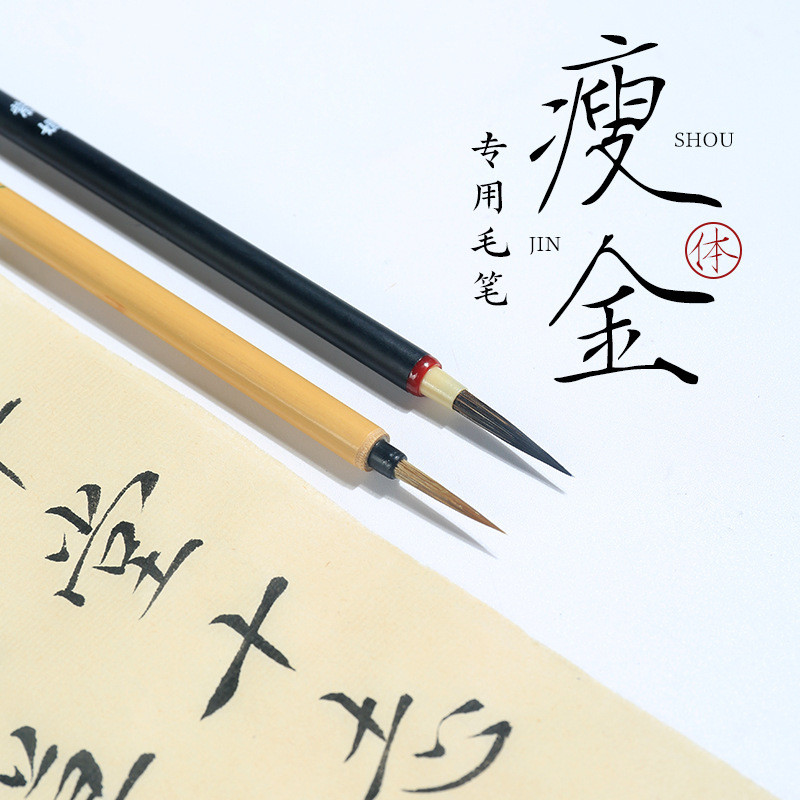 瘦金
SHOU
JIN
体
专用毛笔
堂
十